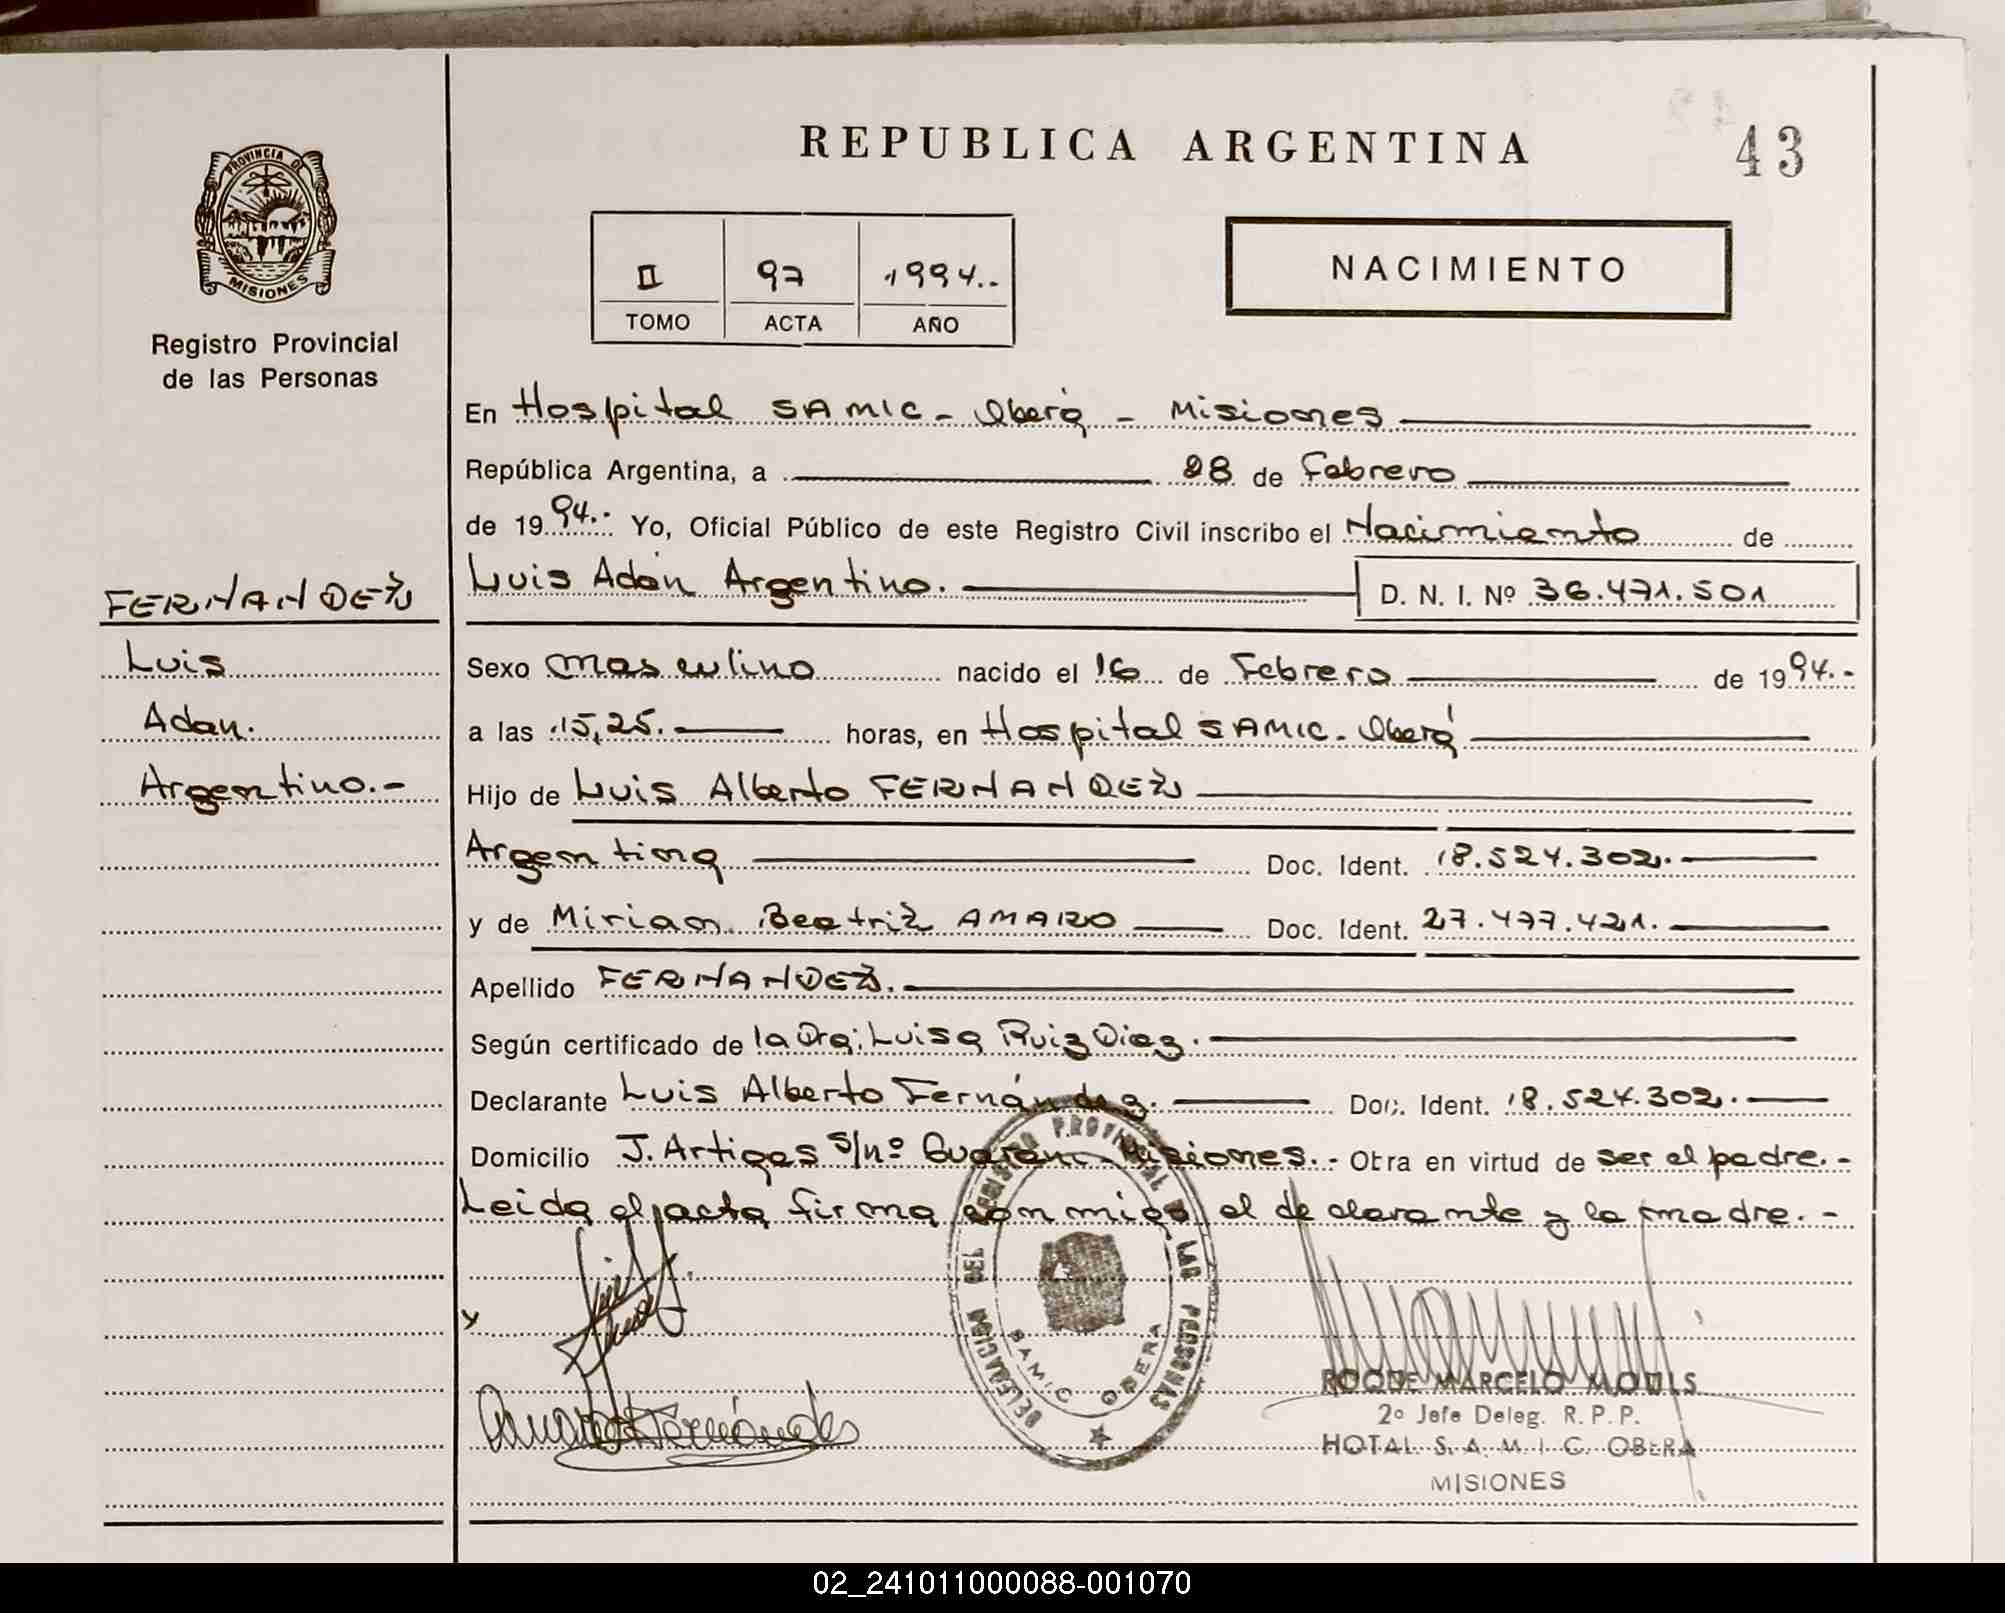 REPUBLICA ARGENTINA
43
PROVINCIA DE
MISIONES
Registro Provincial
de las Personas
II 97 1994.-
TOMO ACTA AÑO
NACIMIENTO
En Hospital SAMIC - Oberá - Misiones
República Argentina, a 28 de Febrero
de 1994.- Yo, Oficial Público de este Registro Civil inscribo el Nacimiento de
Luis Adán Argentino. D. N. I. Nº 36.471.501
FERNANDEZ
Luis
Adan.
Argentino.-
Sexo masculino nacido el 16 de Febrero de 1994.-
a las 15,25. horas, en Hospital SAMIC - Oberá
Hijo de Luis Alberto FERNANDEZ
Argentina Doc. Ident. 18.524.302.
y de Miriam Beatriz AMARO Doc. Ident. 27.477.421.
Apellido FERNANDEZ.
Según certificado de la Dra; Luisa Ruiz Diaz.
Declarante Luis Alberto Fernández. Doc. Ident. 18.524.302.
Domicilio J. Artigas S/nº Guaraní Misiones.- Obra en virtud de ser el padre.-
Leida el acta firma conmigo el declarante y la madre.-
y
DELEGACION DEL REGISTRO PROVINCIAL DE LAS PERSONAS
SAMIC OBERA
Fernández
ROQUE MARCELO
2º Jefe Deleg. R. P. P.
HOTAL S. A. M. I. C. OBERA
MISIONES
02_241011000088-001070